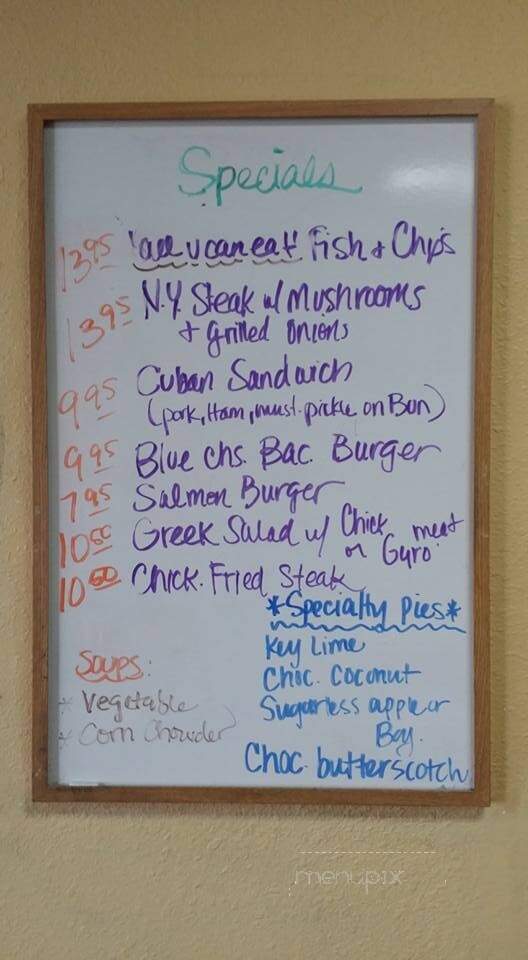 Specials
13 95 "all u can eat" Fish & Chips
13 95 N.Y. Steak w/ Mushrooms
+ grilled onions
9 95 Cuban Sandwich
(pork, Ham, must. pickle on Bun)
9 95 Blue chs. Bac. Burger
7 95 Salmon Burger
10 50 Greek Salad w/ Chick
or Gyro meat
10 50 Chick. Fried Steak
*Specialty Pies*
Key Lime
Choc. Coconut
Sugarless apple or
Boy.
Choc. butterscotch
Soups:
* Vegetable
* Corn Chowder
menupix